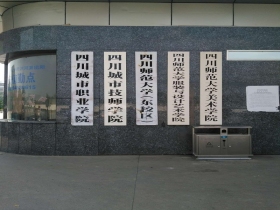 四川城市职业学院
四川城市技师学院
四川师范大学(东校区)
四川师范大学服装与设计艺术学院
四川师范大学美术学院